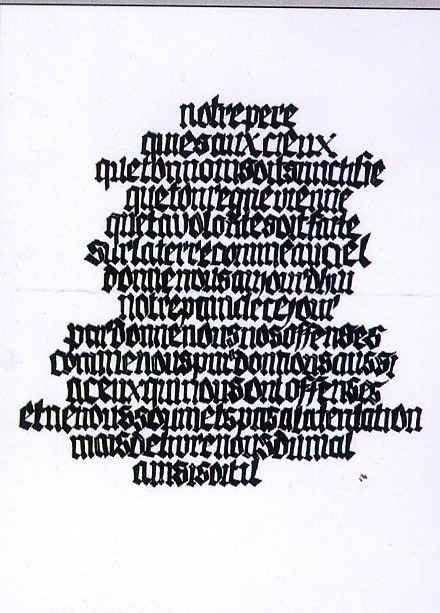 notrepere
quiesauxcieux
quetonnomsoitsanctifie
quetonregnevienne
quetavolontesoitfaite
surlaterrecommeauciel
donnenousaujourdhui
notrepaindecejour
pardonnenousnosoffenses
commenouspardonnonsaussi
aceuxquinousontoffenses
etnenoussoumetspasalatentation
maisdelivrenousdumal
ainsisoitil